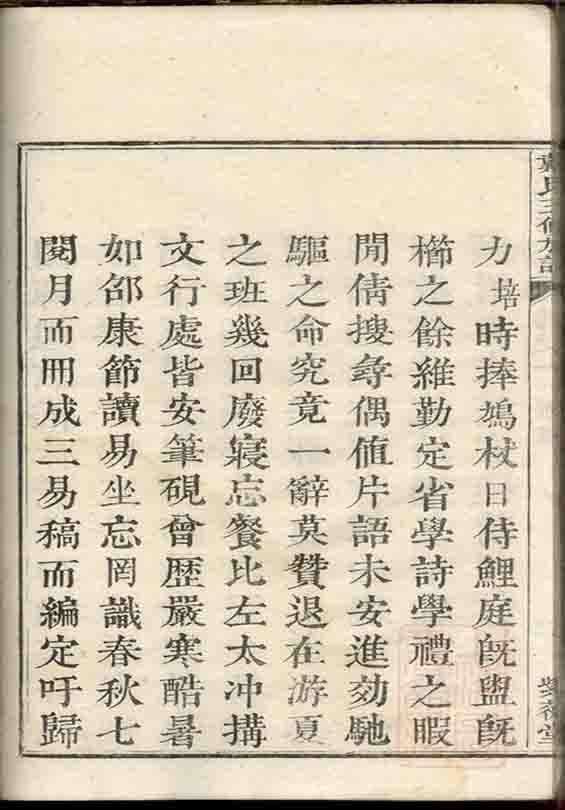 力培時捧鳩杖日侍鯉庭旣盥旣
櫛之餘維勤定省學詩學禮之暇
閒倩搜尋偶值片語未安進効馳
驅之命究竟一辭莫贊退在游夏
之班幾回廢寢忘餐比左太冲搆
文行處皆安筆硯曾歷嚴寒酷暑
如邵康節讀易坐忘罔識春秋七
閱月而冊成三易稿而編定吁歸